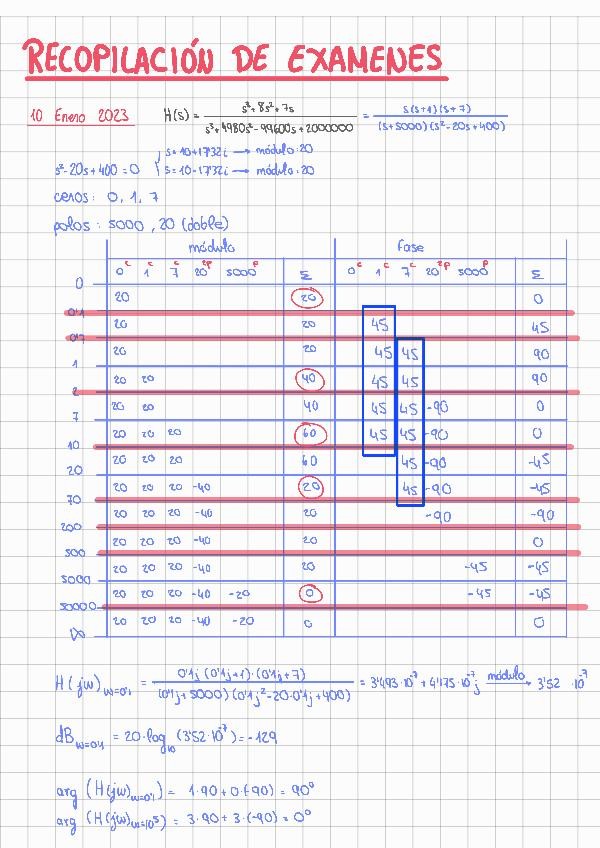 RECOPILACIÓN DE EXAMENES
10 Enero 2023 H(s) = s³+8s²+7s / s³+4980s²-99600s+2000000 = s(s+1)(s+7) / (s+5000)(s²-20s+400)
s²-20s+400=0 s=10+17'32i → módulo:20
s=10-17'32i → módulo:20
ceros: 0, 1, 7
polos: 5000, 20 (doble)
módulo fase
0ᶜ 1ᶜ 7ᶜ 20²ᵖ 5000ᵖ Σ 0ᶜ 1ᶜ 7ᶜ 20²ᵖ 5000ᵖ Σ
0
20 20 0
0'1
20 20 45 45
0'7
20 20 45 45 90
1
20 20 40 45 45 90
2
20 20 40 45 45 -90 0
7
20 20 20 60 45 45 -90 0
10
20 20 20 60 45 -90 -45
20
20 20 20 -40 20 45 -90 -45
70
20 20 20 -40 20 -90 -90
200
20 20 20 -40 20 0
500
20 20 20 -40 20 -45 -45
5000
20 20 20 -40 -20 0 -45 -45
50000
20 20 20 -40 -20 0 0
∞
H(jω)ω=0'1 = 0'1j (0'1j+1)·(0'1j+7) / (0'1j+5000)(0'1j²-20·0'1j+400) = 3'493·10⁻⁷+4'175·10⁻⁷j módulo → 3'52·10⁻⁷
dBω=0'1 = 20·log₁₀ (3'52·10⁻⁷) = -129
arg (H(jω)ω=0'1) = 1·90+0·(-90) = 90°
arg (H(jω)ω=10⁵) = 3·90+3·(-90) = 0°